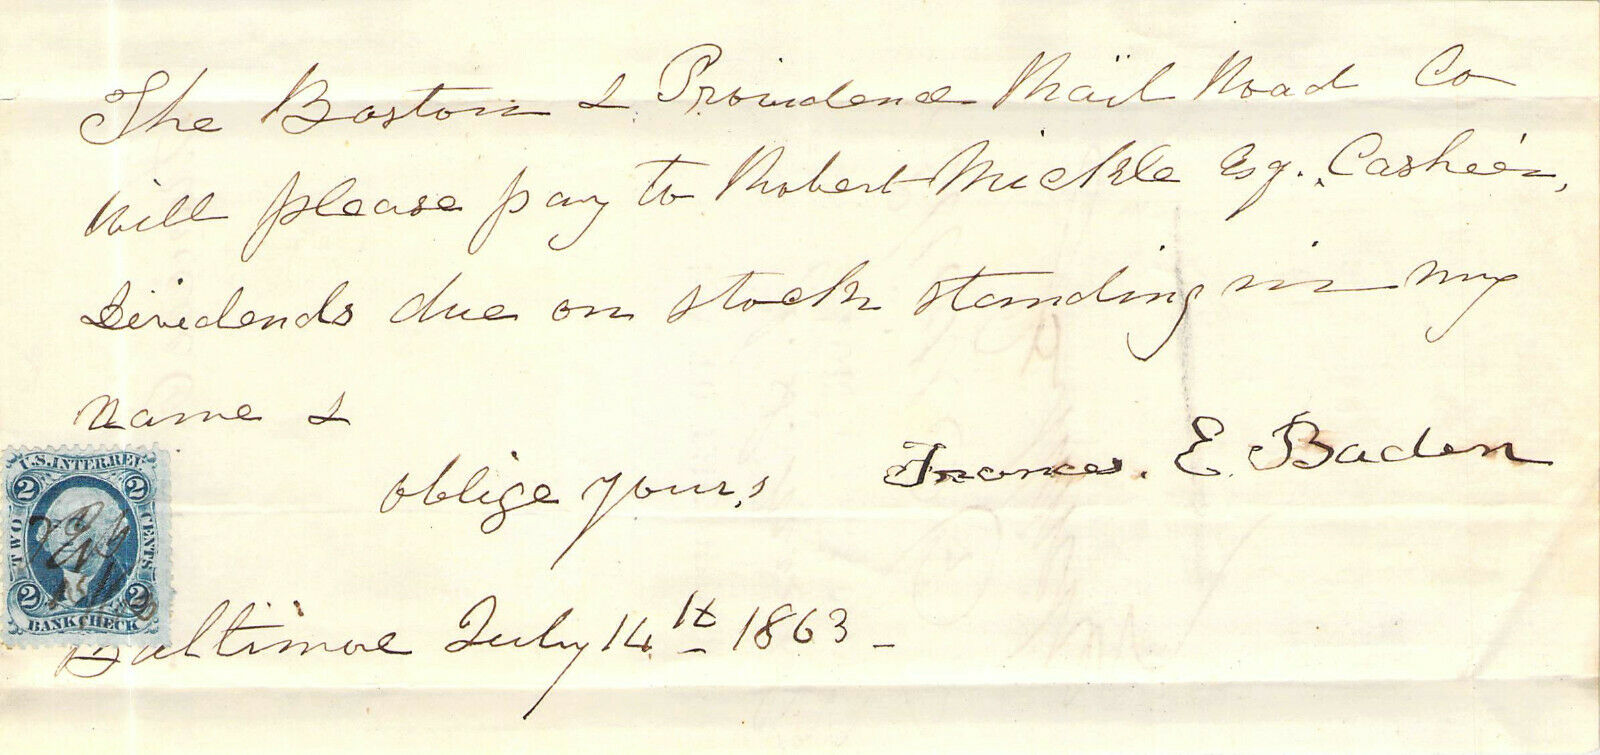 The Boston & Providence Rail Road Co
will please pay to Robert Mickle Esq. Cashier,
Dividends due on stock standing in my
name &
oblige yours,
Frances. E. Baden
U.S. INTER. REV.
2 2
TWO CENTS
2 2
BANK CHECK
Baltimore July 14th 1863